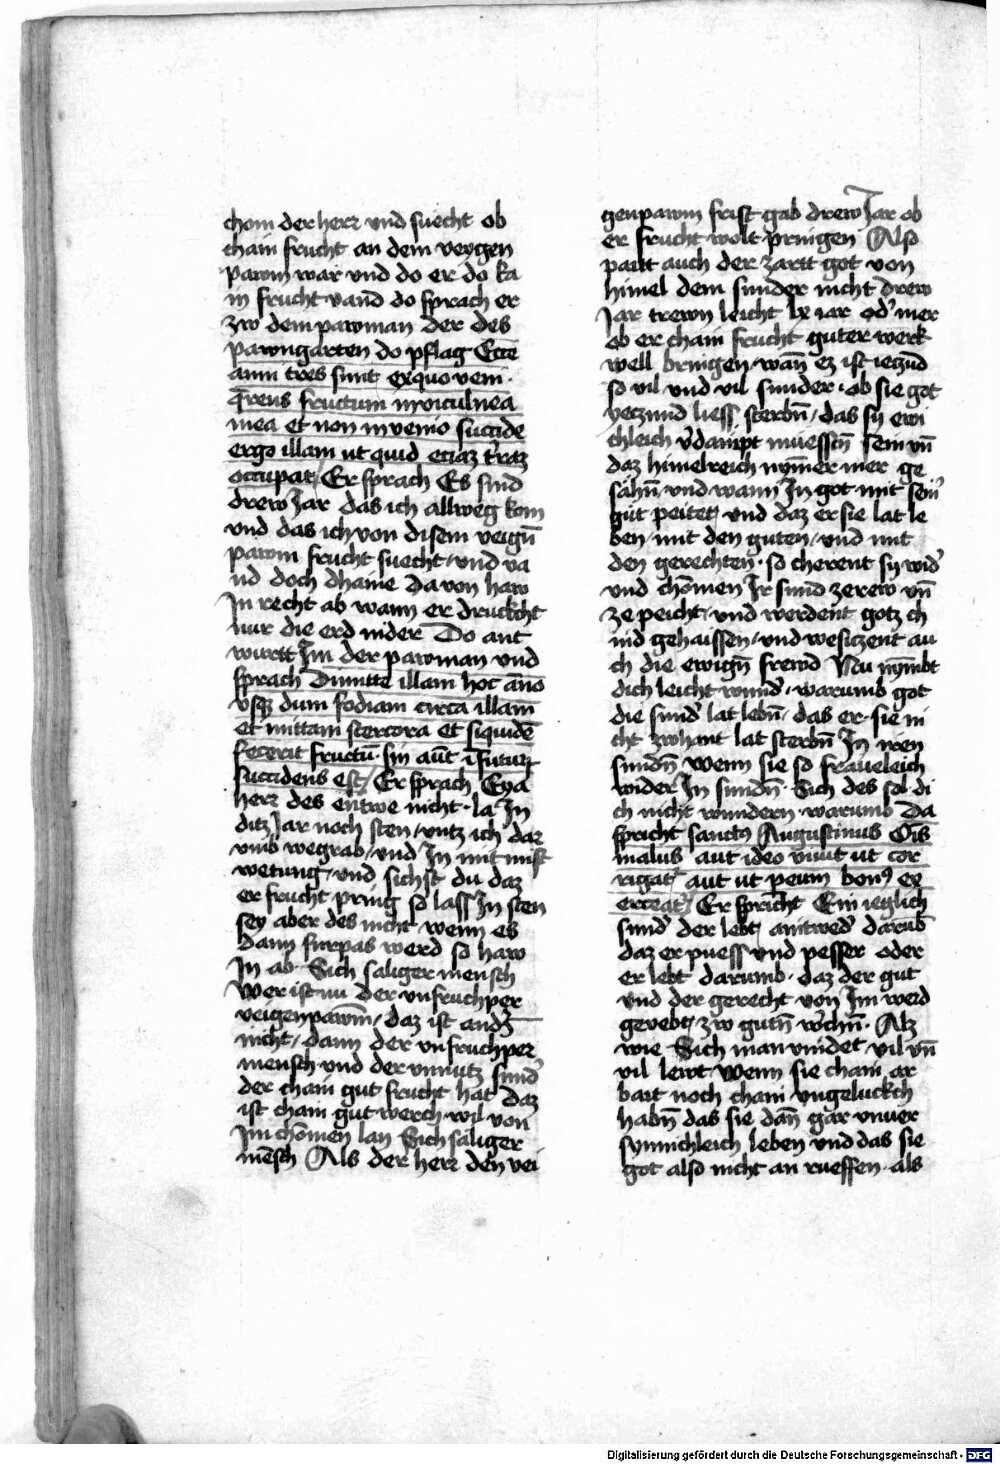 chom der herr vnd suecht ob
chain frucht an dem veygen
pawm war vnd do er do ka
in frucht vand do sprach er
zw dem pawman der des
pawngarten do pflag Ecce
anni tres sunt exquo veni ·
q̄rens fructum in viculnea
mea et non invenio succide
ergo illam ut quid eciaz traz
occupat / Er sprach Es sind
drew Jar das ich allweg kom
vnd das ich von disem veign̄
pawm frucht suecht / vnd va
nd doch dhaine da von haw
In recht ab wann er druckcht
nur die erd nider Do ant
wurtt Im der pawman vnd
sprach Dimitte illam hoc an̄o
vsq dum fodiam circa illam
et mittam stercora et siquidē
fecerit fructū · sin aūt ī futurū
succidens est / Er sprach Eya
herr des entwe nicht · la In
ditz Jar noch sten / vntz ich dar
vmb wegrab / vnd In mit mist
wetung / vnd sichst du daz
er frucht pring so lass In sten
sey aber des nicht wenn es
dann furpas werd so haw
In ab · Sich saliger mensch
Wer ist nu der vnfruchper
veigenpawm̄ / daz ist anders
nicht / dann der vnfruchper
mensch vnd der vnnutz sund'
der chain gut frucht hat daz
ist chain gut werch · wil von
Im chōmen lan Sich sāliger
mēsch Als der herr den vei
genpawm frist gab drew Jar ob
er frucht wolt pringen Also
paitt auch der zartt got von
himel dem sunder nicht drew
Jar trewn leicht lx iar od' mer
ob er chain frucht guter werk
well bringen · wan̄ ez ist ieczūd
so vil vnd vil sunder · ob sie got
yeczund liess sterbn̄ / das sy ewi
chleich v'dampt muessen̄ sein vn̄
daz himelreich nym̄er mer ge
sahn̄ · vnd wann In got mit sein'
gut peitet / vnd daz er sie lat le
ben / mit den guten / vnd mit
den gerechten̄ · so cherent sy wid'
vnd chōmen Ir sund ze rew vn̄
ze peicht / vnd werdent gotz ch
ind gehaissen / vnd wesiczent au
ch die ewign̄ frewd Nu nymbt
dich leicht wund' · warumb got
die sund' lat lebn̄ / das er · sie ni
cht zwhant lat sterbn̄ In iren
sundn̄ wenn sie so fraueleich
wider In sundn̄ · Sich des sol di
ch nicht wundern · warumb Da
spricht sanctus Augustinus Oīs
malus aut ideo viuit ut cor
rigat' aut ut peum bon9 ex
erceat' / Er spricht Ein ieglich
sund' der lebt / aintwed' darūb
daz er puess vnd pesser oder
er lebt darumb · daz der gut
vnd der gerecht von Im werd
geuebt / zw gutn̄ w'chn̄ · Alz
wie Sich man vindet / vil vn̄
vil lewt / Wenn sie chain ar
bait noch chain vngeluckch
habn̄ das sie dan̄ gar vnuer
synnichleich leben vnd das sie
got also nicht an rueffen · als
Digitalisierung gefördert durch die Deutsche Forschungsgemeinschaft - DFG